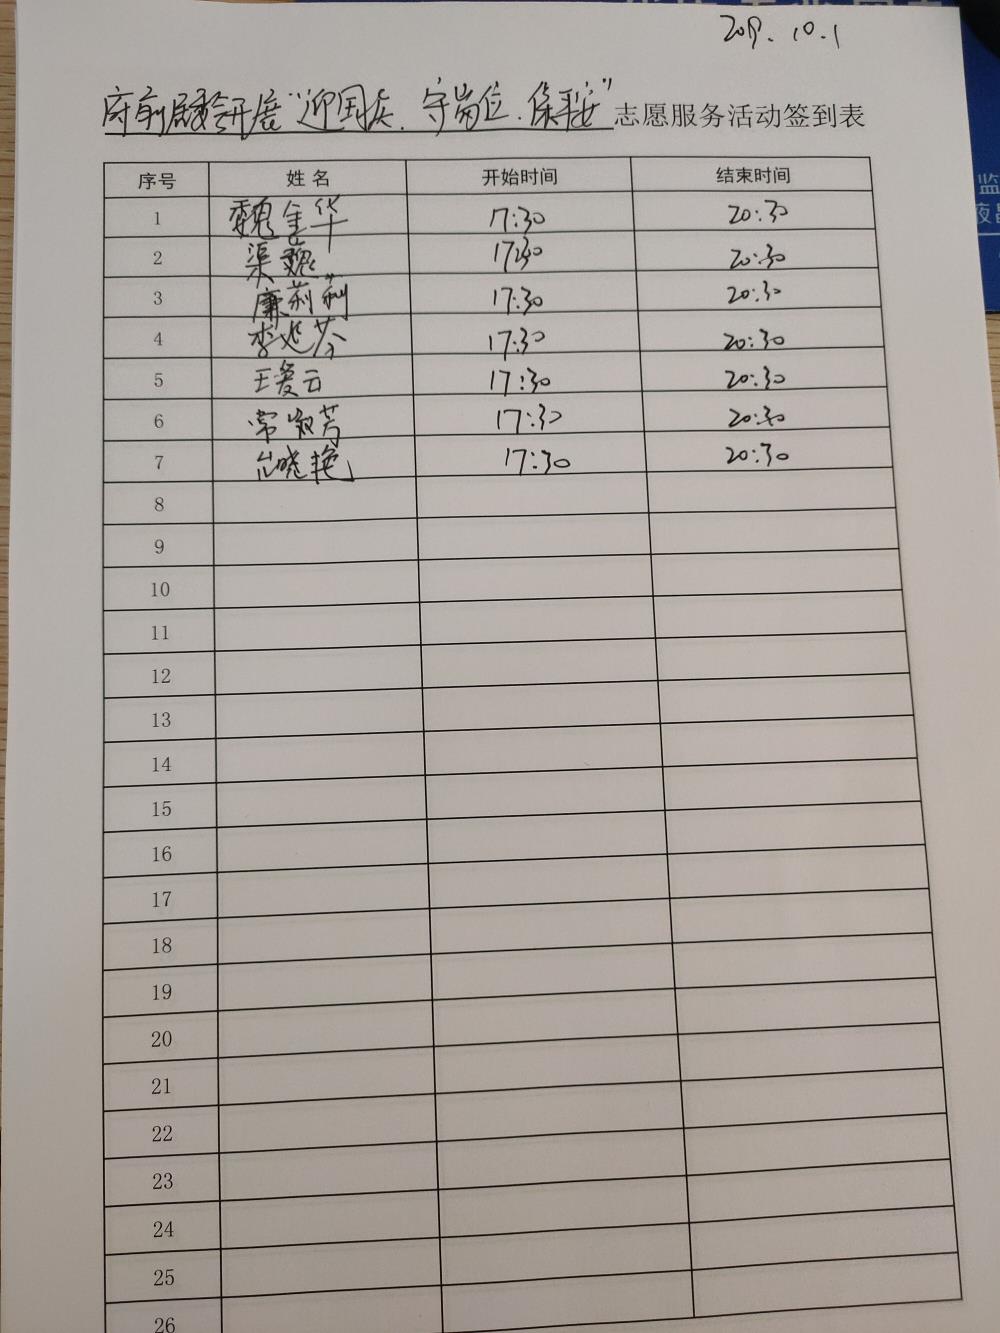 2019.10.1
府前居委会开展“迎国庆、守岗位、保平安”志愿服务活动签到表
序号 姓名 开始时间 结束时间
1 魏金华 17:30 20:30
2 渠巍 17:30 20:30
3 廉莉莉 17:30 20:30
4 李延芬 17:30 20:30
5 王爱云 17:30 20:30
6 常淑芳 17:30 20:30
7 晓艳 17:30 20:30
8
9
10
11
12
13
14
15
16
17
18
19
20
21
22
23
24
25
26
监